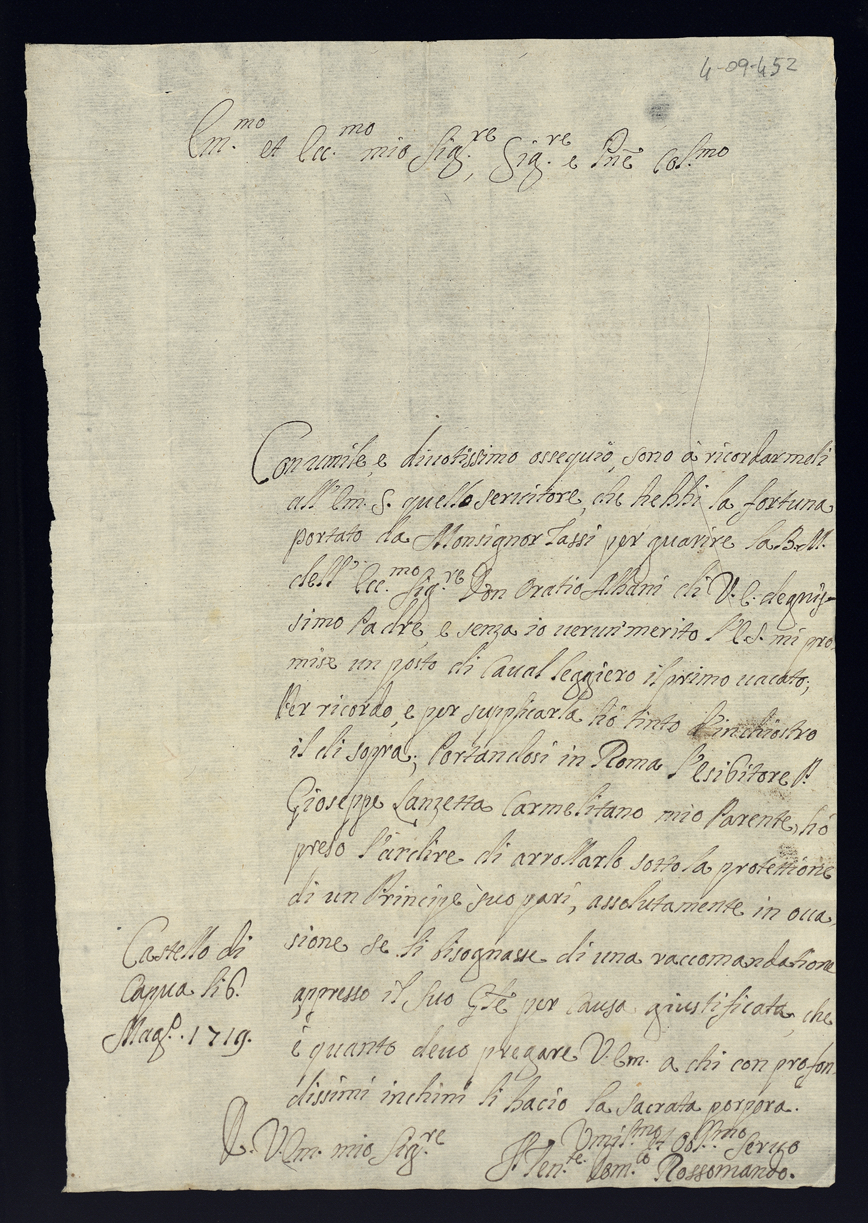 4-09-452
Em.mo et Ecc.mo mio Sig.re, Sig.re e Pnē Col.mo
Con umile, e divotissimo ossequio, sono à ricordarmeli
all'Em. S. quello servitore, che hebbi la fortuna
portato da Monsignor Tassi per guarire la B.M.
dell'Ecc.mo Sig.re Don Oratio Albani di V.E. degnis-
simo Padre, e senza io verun'merito l'E.S. mi pro-
mise un posto di Caval leggiero il primo vacato;
Per ricordo, e per supplicarla hò tinto l'inchiostro
il di sopra; Portandosi in Roma l'esibitore P.
Gioseppe Lanzetta Carmelitano mio Parente, hò
preso l'ardire di arrollarlo sotto la protettione
di un Principe suo pari, assolutamente in occa-
sione se li bisognasse di una raccomandatione
appresso il suo Gñle per causa giustificata, che
è quanto devo pregare V. Em. a chi con profon-
dissimi inchini li bacio la sacrata porpora.
Castello di
Capua li 6.
Mag.o 1719.
D. V. Em. mio Sig.re
Umil.mo et Obl.mo Servo
Ten.te Dom.co Rossomando.